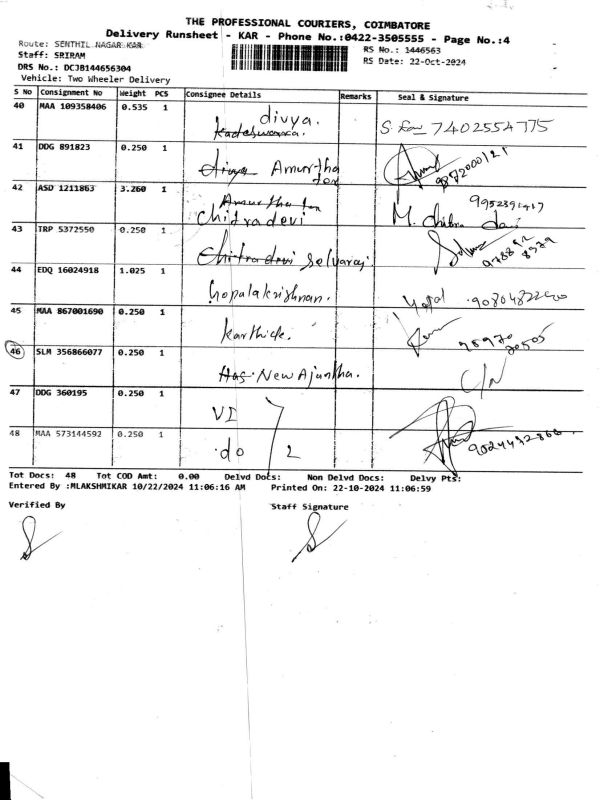 THE PROFESSIONAL COURIERS, COIMBATORE
Delivery Runsheet - KAR - Phone No.:0422-3505555 - Page No.:4
Route: SENTHIL NAGAR KAR
RS No.: 1446563
Staff: SRIRAM
RS Date: 22-Oct-2024
DRS No.: DCJB144656304
Vehicle: Two Wheeler Delivery
S No Consignment No Weight PCS Consignee Details Remarks Seal & Signature
40 MAA 109358406 0.535 1 divya. 7402554775
41 DDG 891823 0.250 1 divya Amurtha
42 ASD 1211863 3.260 1 Chitradevi M. Chitra
43 TRP 5372550 0.250 1 Chitradevi Selvaraj.
44 EDQ 16024918 1.025 1 Gopalakrishnan.
45 MAA 867001690 0.250 1 Karthick.
46 SLM 356866077 0.250 1 New Ajantha. C/N
47 DDG 360195 0.250 1 VI
48 MAA 573144592 0.250 1 do 2
Tot Docs: 48 Tot COD Amt: 0.00 Delvd Docs: Non Delvd Docs: Delvy Pts:
Entered By :MLAKSHMIKAR 10/22/2024 11:06:16 AM Printed On: 22-10-2024 11:06:59
Verified By Staff Signature